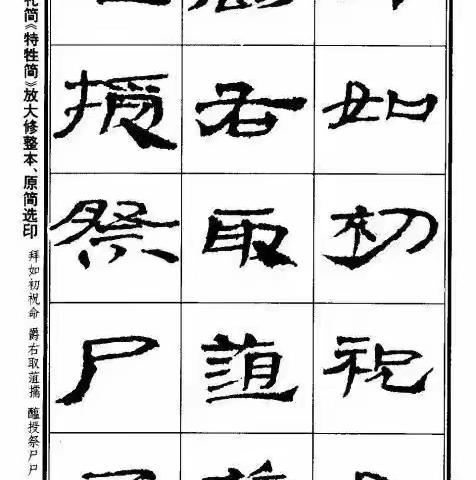 如初祝
右取菹
授祭尸
礼简《特牲简》放大修整本、原简选印
拜如初祝命 爵右取菹擩 醢授祭尸尸